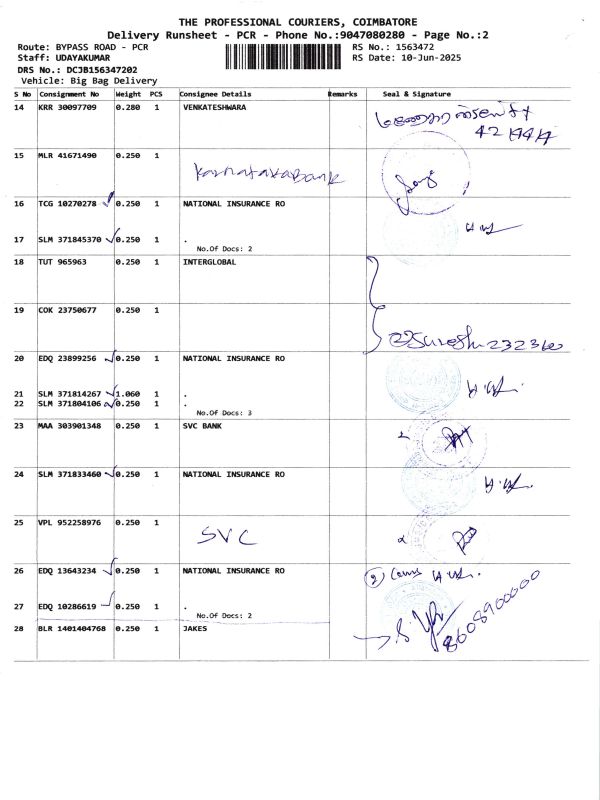 THE PROFESSIONAL COURIERS, COIMBATORE
Delivery Runsheet - PCR - Phone No.:9047080280 - Page No.:2
Route: BYPASS ROAD - PCR
RS No.: 1563472
Staff: UDAYAKUMAR
RS Date: 10-Jun-2025
DRS No.: DCJB156347202
Vehicle: Big Bag Delivery
S No Consignment No Weight PCS Consignee Details Remarks Seal & Signature
14 KRR 30097709 0.280 1 VENKATESHWARA
15 MLR 41671490 0.250 1
Karnatakabank
16 TCG 10270278 0.250 1 NATIONAL INSURANCE RO
17 SLM 371845370 0.250 1 .
No.Of Docs: 2
18 TUT 965963 0.250 1 INTERGLOBAL
19 COK 23750677 0.250 1
Suresh
20 EDQ 23899256 0.250 1 NATIONAL INSURANCE RO
21 SLM 371814267 1.060 1 .
22 SLM 371804106 0.250 1 .
No.Of Docs: 3
23 MAA 303901348 0.250 1 SVC BANK
24 SLM 371833460 0.250 1 NATIONAL INSURANCE RO
25 VPL 952258976 0.250 1
SVC
26 EDQ 13643234 0.250 1 NATIONAL INSURANCE RO
27 EDQ 10286619 0.250 1 .
No.Of Docs: 2
28 BLR 1401404768 0.250 1 JAKES
8608900000